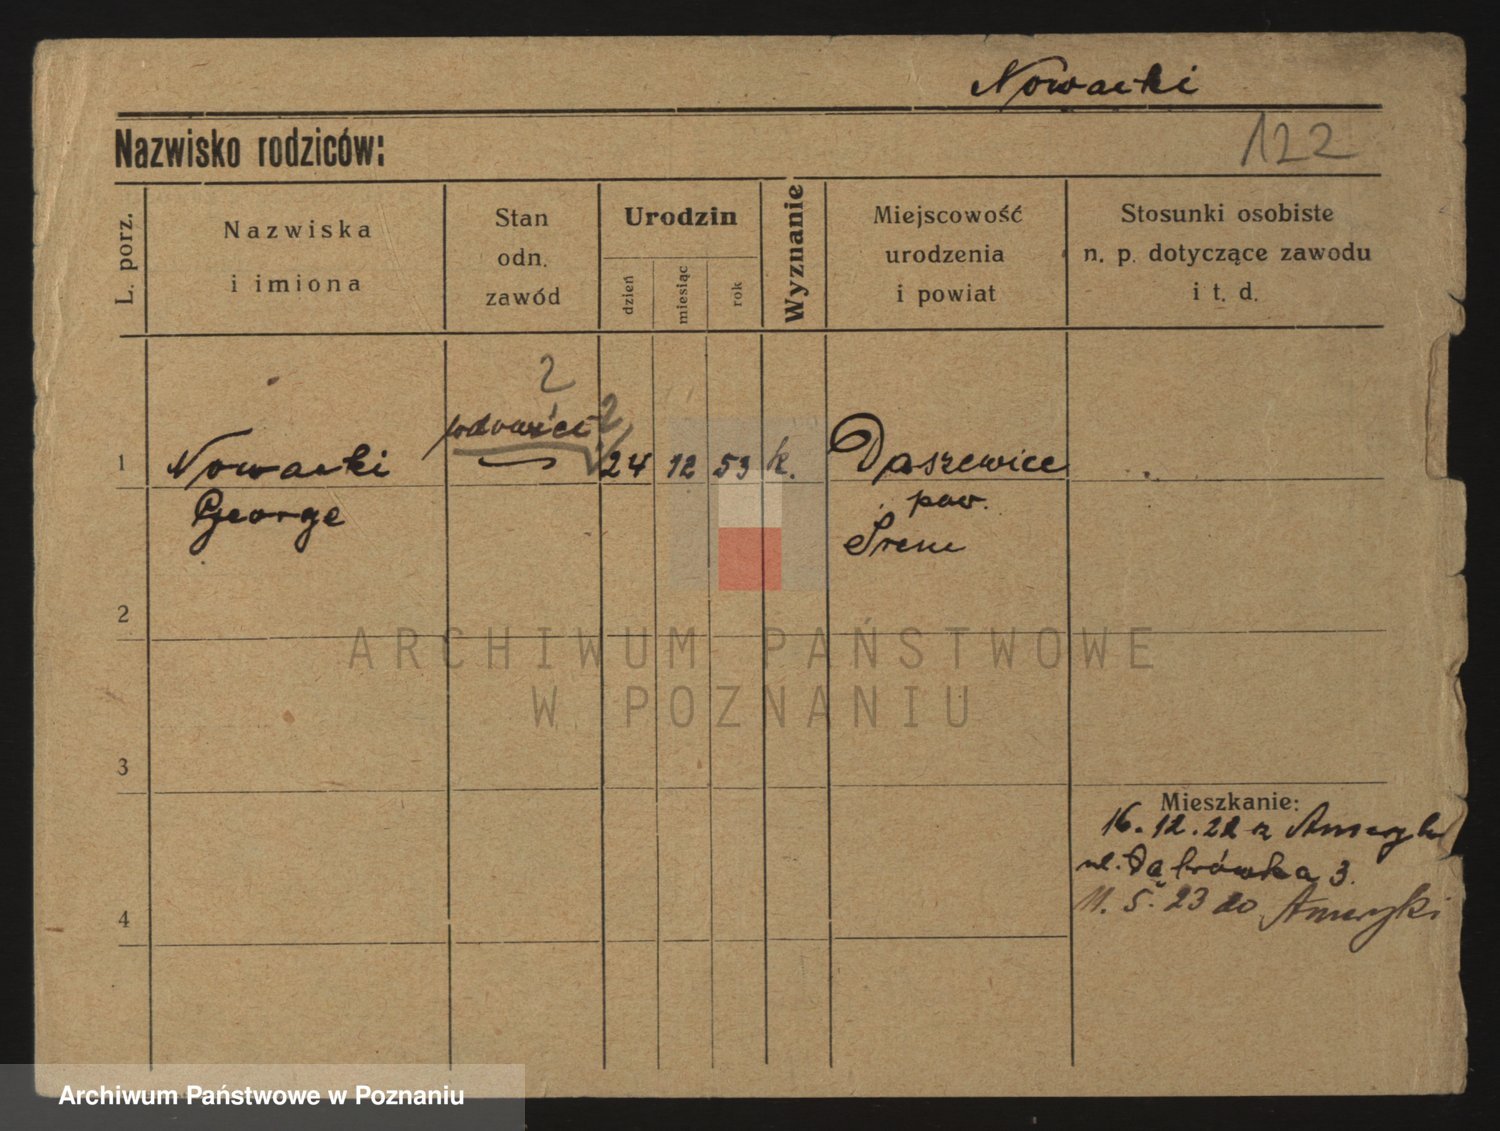 Nowacki
Nazwisko rodziców:
122
L. porz.
Nazwiska
i imiona
Stan
odn.
zawód
Urodzin
dzień
miesiąc
rok
Wyznanie
Miejscowość
urodzenia
i powiat
Stosunki osobiste
n. p. dotyczące zawodu
i t. d.
2
2
1 Nowacki 24 12 53 k. Daszewice
George pow.
Śrem
2
ARCHIWUM PAŃSTWOWE
W POZNANIU
3
Mieszkanie:
16.12.22 z Ameryki
ul. Dąbrówka 3.
4
11.5.23 do Ameryki
Archiwum Państwowe w Poznaniu